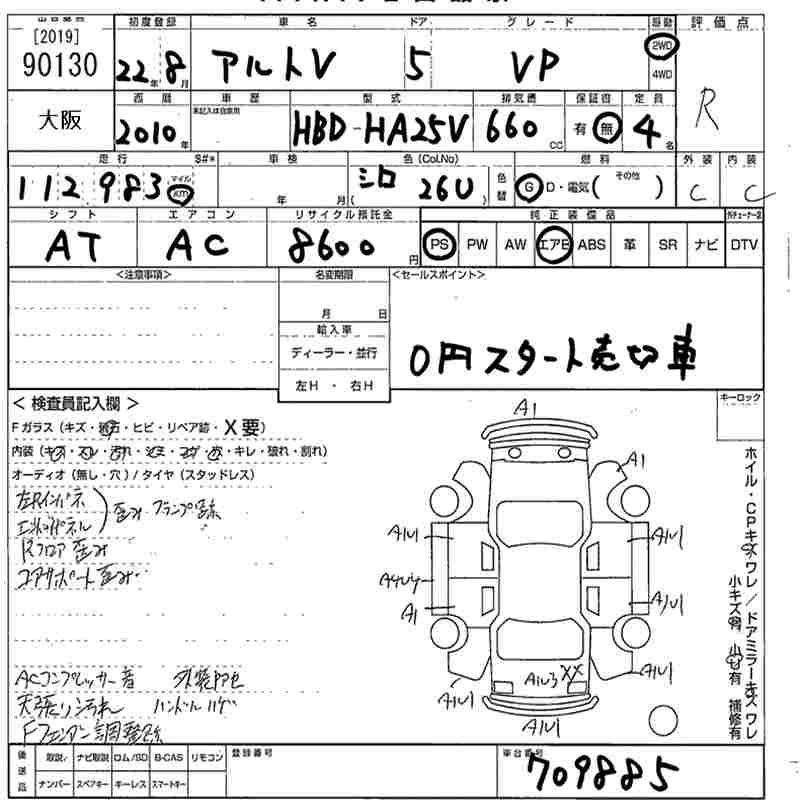 [2019]
90130
初度登録
22年8月
車名
アルトV
ドア
5
グレード
VP
駆動
2WD
4WD
評価点
R
大阪
西暦
2010年
車歴
未記入は自家用
型式
HBD-HA25V
排気量
660 CC
保証書
有 無
定員
4名
走行
S#*
112983 マイル Km
車検
年 月
色(Col.No)
シロ ( 26U )
色替
燃料
G D・電気( その他 )
外装
C
内装
C
シフト
AT
エアコン
AC
リサイクル預託金
8600円
純正装備品
PS PW AW エアB ABS 革 SR ナビ DTV
<注意事項>
名変期限
月 日
輸入車
ディーラー・並行
左H・右H
<セールスポイント>
0円スタート売切車
< 検査員記入欄 >
Fガラス(キズ・飛石・ヒビ・リペア跡・X要)
内装(キズ・スレ・汚れ・シミ・コゲ・穴・キレ・破れ・割れ)
オーディオ(無し・穴)/タイヤ(スタッドレス)
左Rインパネ
エンドパネル
歪み クランプ跡
Rフロア 歪み
コアサポート歪み
ACコンプレッサー音 外装凹色
天張り汚れ ハンドルハゲ
Fフェンダー調整跡
キーロック
ホイル・CPキズワレ/ドアミラーキズワレ
小キズ有 小凹有 補修有
A1
A1
Aルリ
Aルリ
A4リ4
A1
Aルリ
Aルリ
Aルリ
Aル3 XX
Aルリ
後送品
取説 ナビ取説 ロム/SD B-CAS リモコン
ナンバー スペアキー キーレス スマートキー
登録番号
車台番号
709885